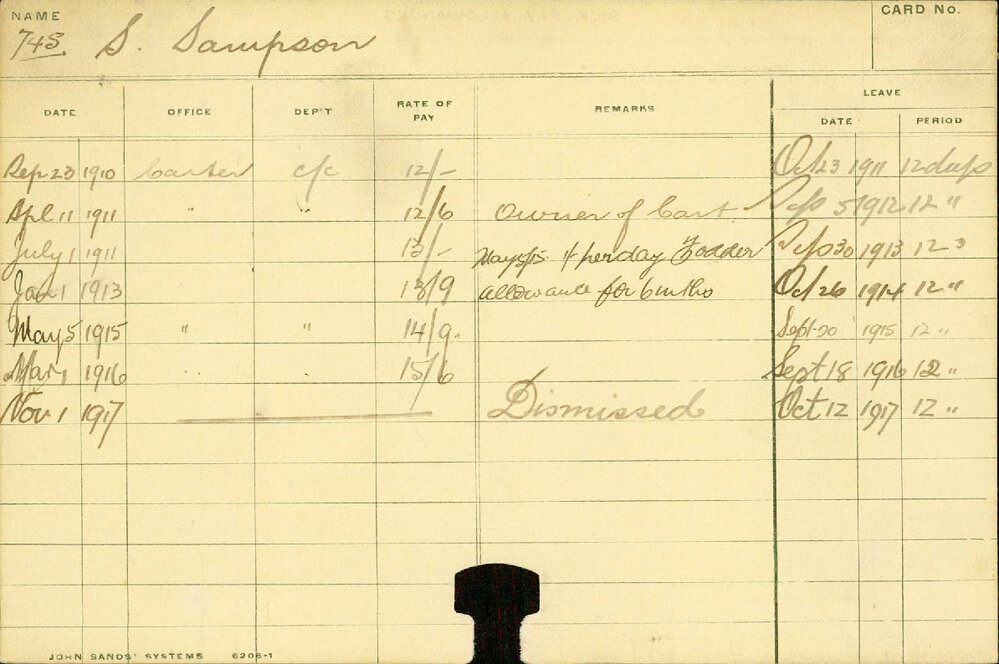 NAME CARD NO.
74S S. Sampson
DATE OFFICE DEP'T RATE OF PAY REMARKS LEAVE
DATE PERIOD
Sep 23 1910 Carter c/c 12/- Oct 23 1911 12 days
Apl 11 1911 " " 12/6 Owner of Cart 5 1912 12 "
July 1 1911 13/- May 5/15 1/- per day Fodder 30 1913 12 "
Jan 1 1913 13/9 allowance for 6 mths Oct 26 1914 12 "
May 5 1915 " " 14/9 Sept 20 1915 12 "
Mar 1 1916 " " 15/6 Sept 18 1916 12 "
Nov 1 1917 Dismissed Oct 12 1917 12 "
JOHN SANDS' SYSTEMS 6206-1